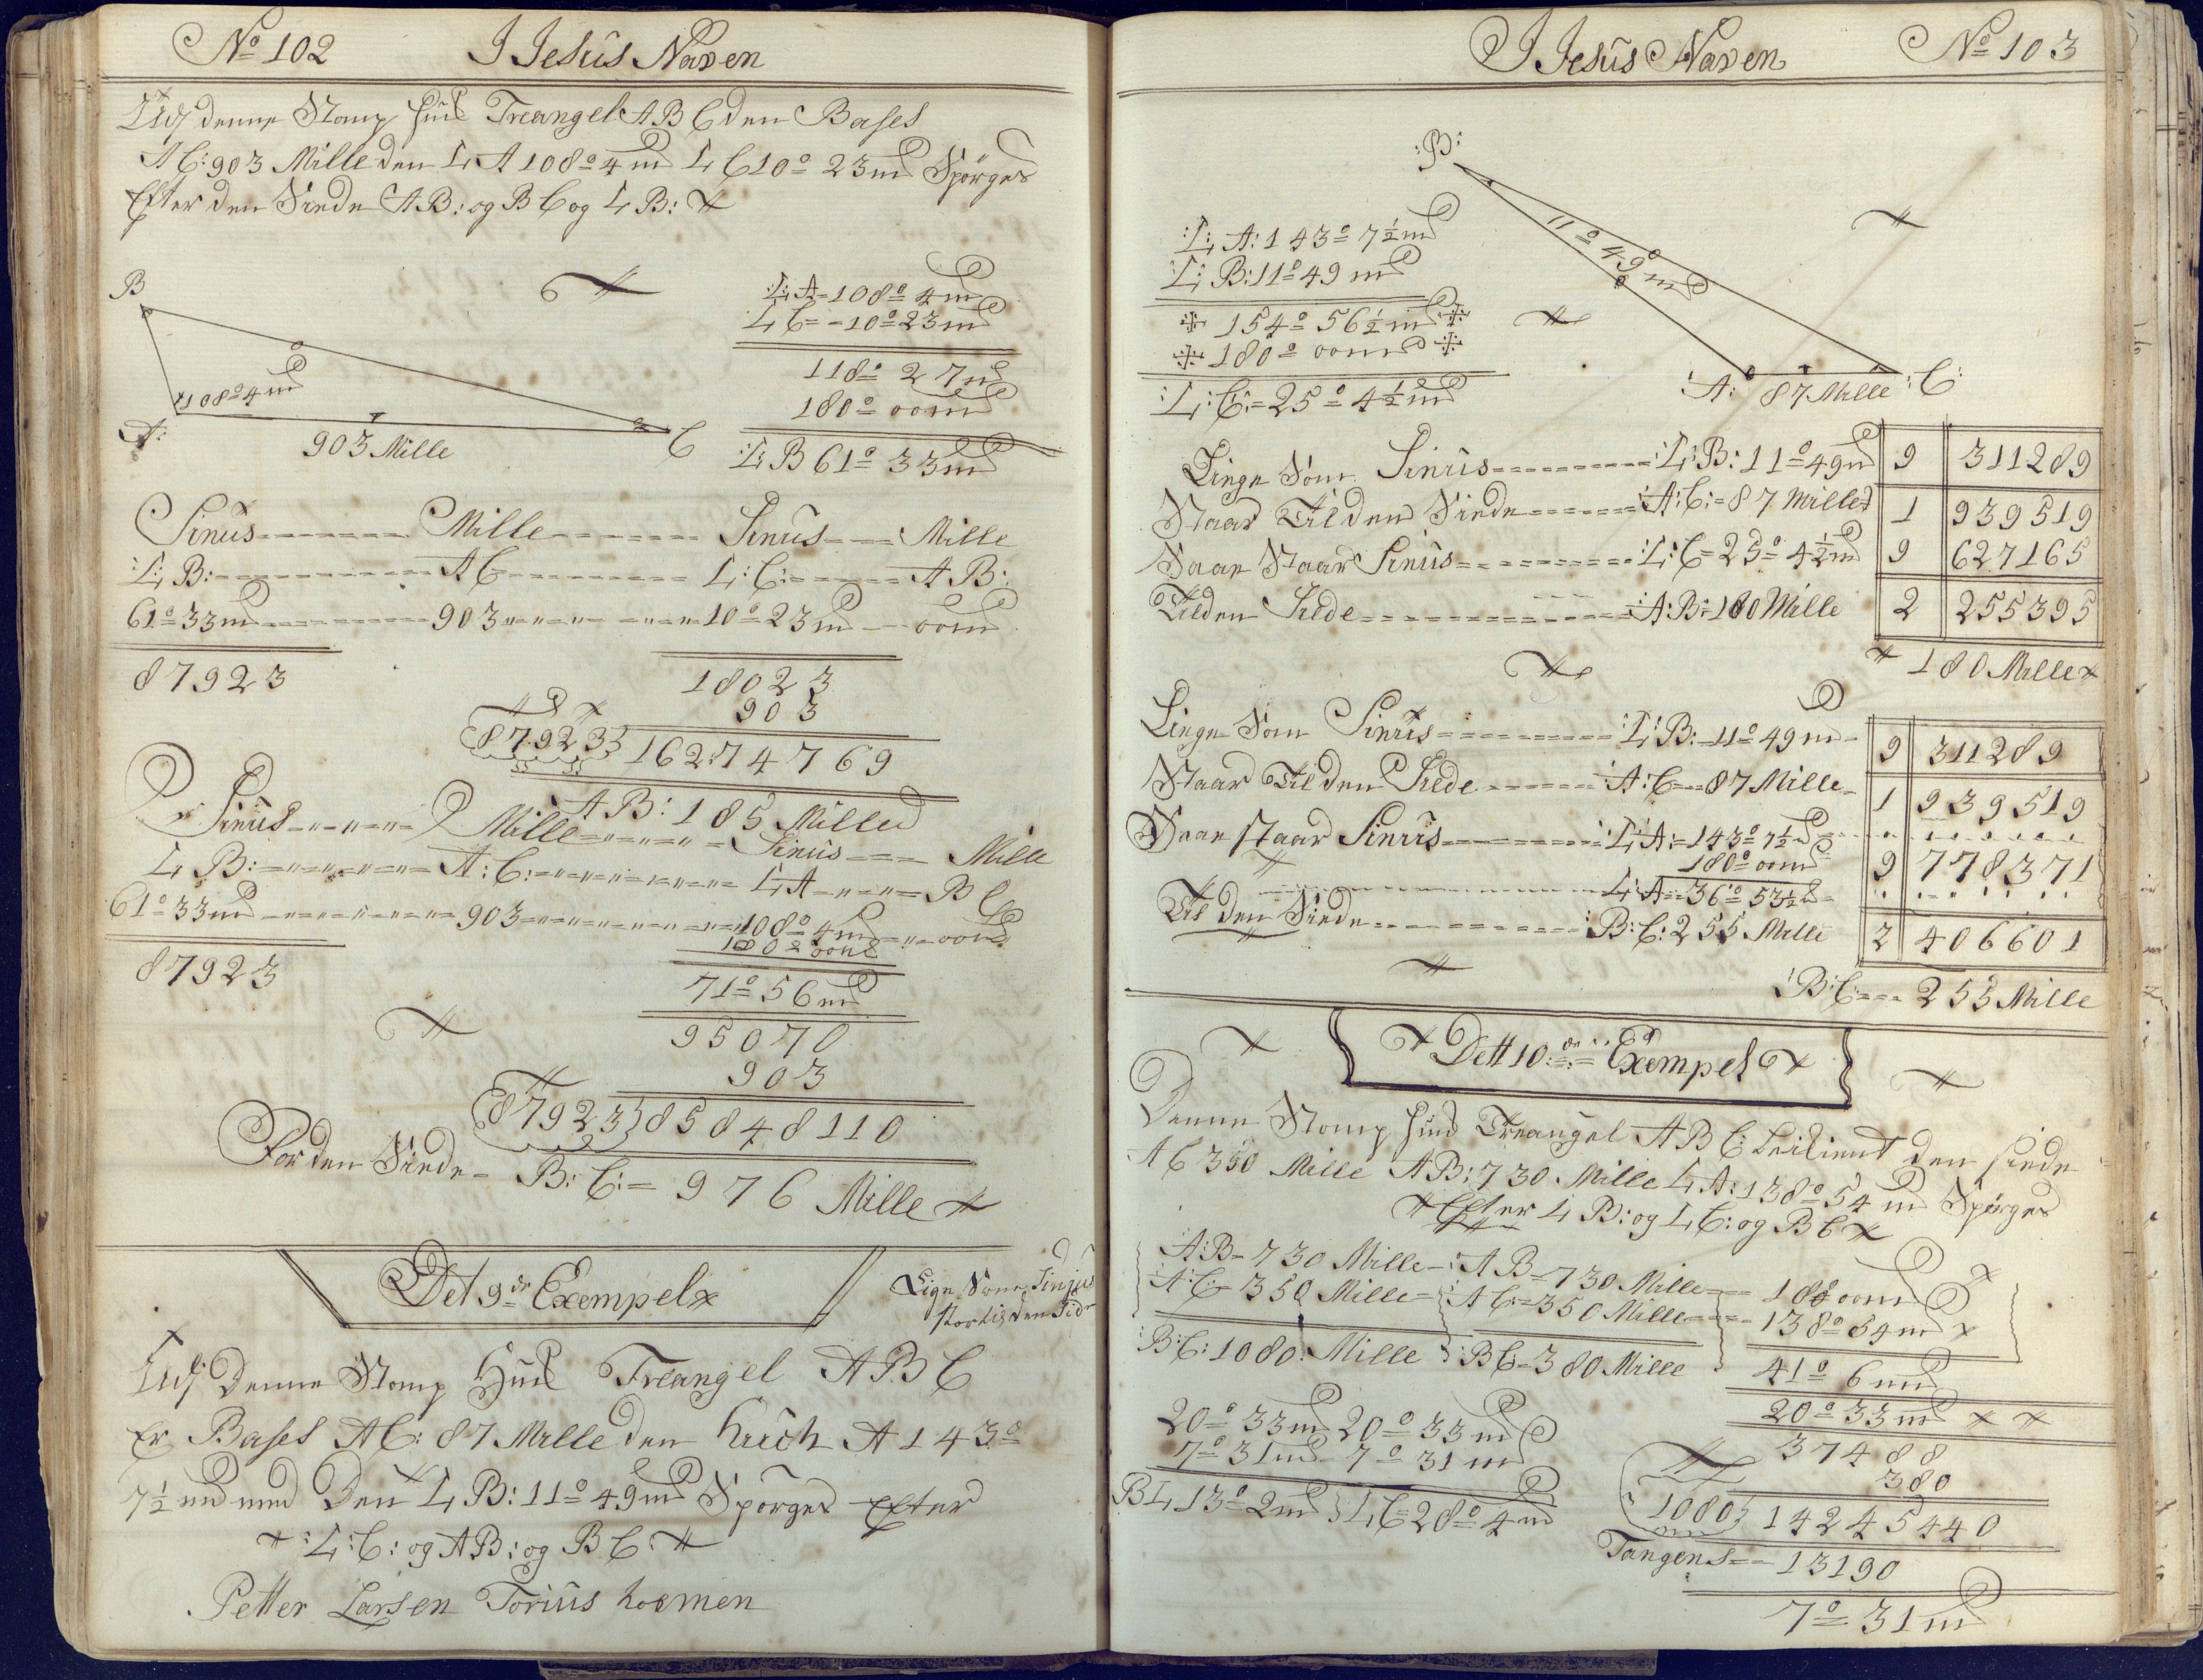 No 102 I Jesus Naven
Udj denne Stomp Huis Treangel A B C den Bases
A C: 903 Mille den L A 108° 4 m L C 10° 23 m Spörges
Efter den Siede A B: og B C og L B:
B
108° 4 m
A:
903 Mille
C
:L: A = 108° 4 m
L C = - 10° 23 m
118° 27 m
180° 00 m
:L: B 61° 33 m
Sinus Mille Sinus Mille
:L: B: A C L: C: A B:
61° 33 m 903 10° 23 m 00 m
87923 18023
903
87923 } 16274769
A B: 185 Mille
Sinus Mille Sinus Mille
L B: A: C: L A B C
61° 33 m 903 108° 4 m 00 m
180° 00 m
87923
71° 56 m
95070
903
87923 } 85848110
For den Siede = B: C: = 976 Mille
Det 9de Exempel
Lige Som Sinjus
stor til den Side
Udj Denne Stomp Huis Treangel A B C
Er Bases A C: 87 Mille den A 143°
7 1/2 m med Den L B: 11° 49 m Spörges Efter
:L: C: og A B: og B C:
Petter Larsen Torius
I Jesus Naven No 103
:B:
11° 49 m
:A: 87 Mille :C:
:L: A: 143° 7 1/2 m
:L: B: 11° 49 m
154° 56 1/2 m
180° 00 m
:L: C: = 25° 4 1/2 m
Lige Som Sinus :L: B: 11° 49 m 9 311289
Staar Til den Siede :A: C: = 87 Mille 1 939519
Saa Staar Sinus :L: C = 25° 4 1/2 m 9 627165
Til den Side :A: B: 180 Mille 2 255395
180 Mille
Lige Som Sinus :L: B: 11° 49 m 9 311289
Staar Til den Side A: C = 87 Mille 1 939519
Saa staar Sinus :L: A: = 143° 7 1/2
180° 00 m 9 778371
L: A = 36° 53 1/2
Til den Siede :B: C: 255 Mille 2 406601
:B: C = 255 Mille
Dett 10de Exempel
Denne Stomp Huis Treangel A B C den siede
A C 350 Mille A B: 730 Mille L A: 138° 54 m Spörges
Efter L B: og L C: og B C
A: B = 730 Mille : A B = 730 Mille 180 00 m
A: C = 350 Mille = A C: = 350 Mille 138° 54 m
B: C: 1080: Mille B C = 380 Mille 41° 6 m
20° 33 m
20° 33 m 20° 33 m 37488
7° 31 m 7° 31 m 380
B L 13° 2 m } L C 28° 4 m 1080 } 14245440
Tangens = 13190
7° 31 m